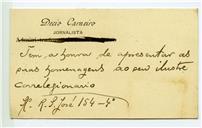 Decio Carneiro
JORNALISTA
Tem a honra de apresentar as
suas homenagens ao seu ilustre
correlegionario
R. S. José 154-4º